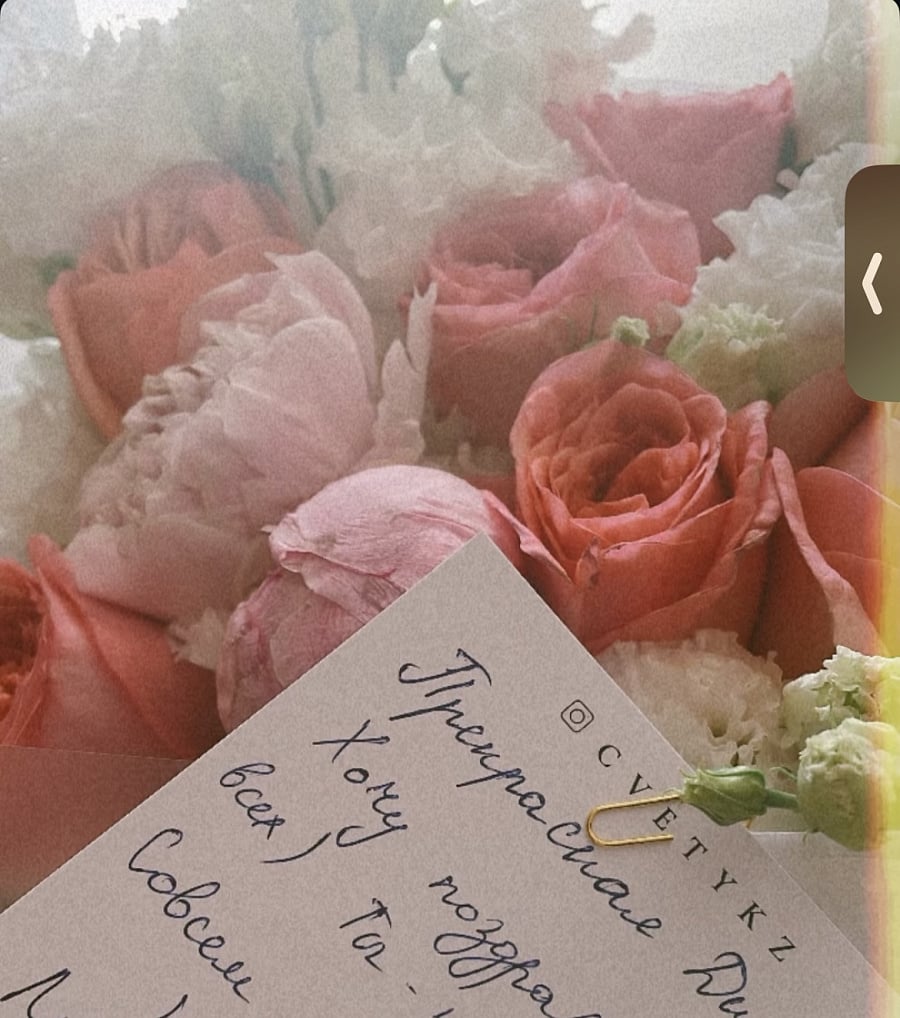 CVETYKZ
Прекрасная
Хочу поздра
всех)
Ты
Совсем